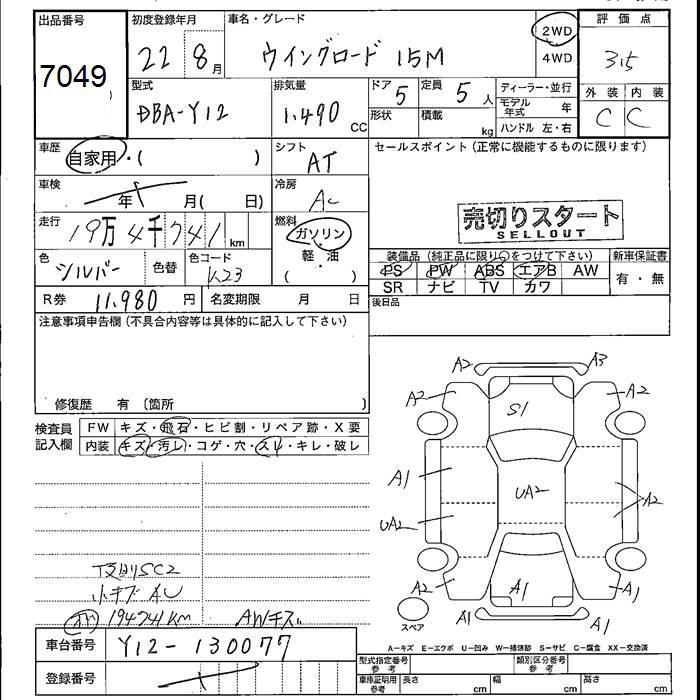 出品番号 初度登録年月 車名・グレード 評価点
7049 22 8月 ウイングロード 15M 2WD 4WD 3.5
型式 排気量 ドア 定員 ディーラー・並行 外装 内装
DBA-Y12 1.490 CC 5 5人 モデル年式 年 C C
形状 積載 kg ハンドル 左・右
車歴 自家用・( ) シフト AT セールスポイント(正常に機能するものに限ります)
車検 年 月( 日) 冷房 AC
売切りスタート
SELLOUT
走行 19万4千741km 燃料 ガソリン・軽・油
色 シルバー 色替 色コード K23
装備品(純正品に限り○をつけて下さい) 新車保証書
PS PW ABS エアB AW 有・無
SR ナビ TV カワ
R券 11.980 円 名変期限 月 日 後日品
注意事項申告欄(不具合内容等は具体的に記入して下さい)
修復歴 有 〔箇所 〕
検査員記入欄 FW キズ・飛石・ヒビ割・リペア跡・X要
内装 キズ・汚レ・コゲ・穴・スレ・キレ・破レ
A2 A3
A2 S1 A2
A1 UA2 A2
UA2
A2 A1 A1
A1 A1
スペア
下廻りSC2
小キズAU
194741km AWキズ
A-キズ E-エクボ U-凹み W-補修跡 S-サビ C-腐食 XX-交換済
車台番号 Y12-130077
登録番号
型式指定番号 参考 類別区分番号 参考
車庫証明用 参考 長さ cm 幅 cm 高さ cm